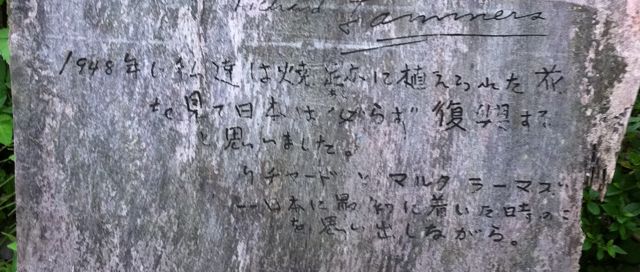 Richard Lammers
1948年に私達は焼茫に植えられた花
を見て日本は必らず復興する
と思いました。
リチャードとマルタ ラーマズ
日本に最初に着いた時のこと
を思い出しながら。